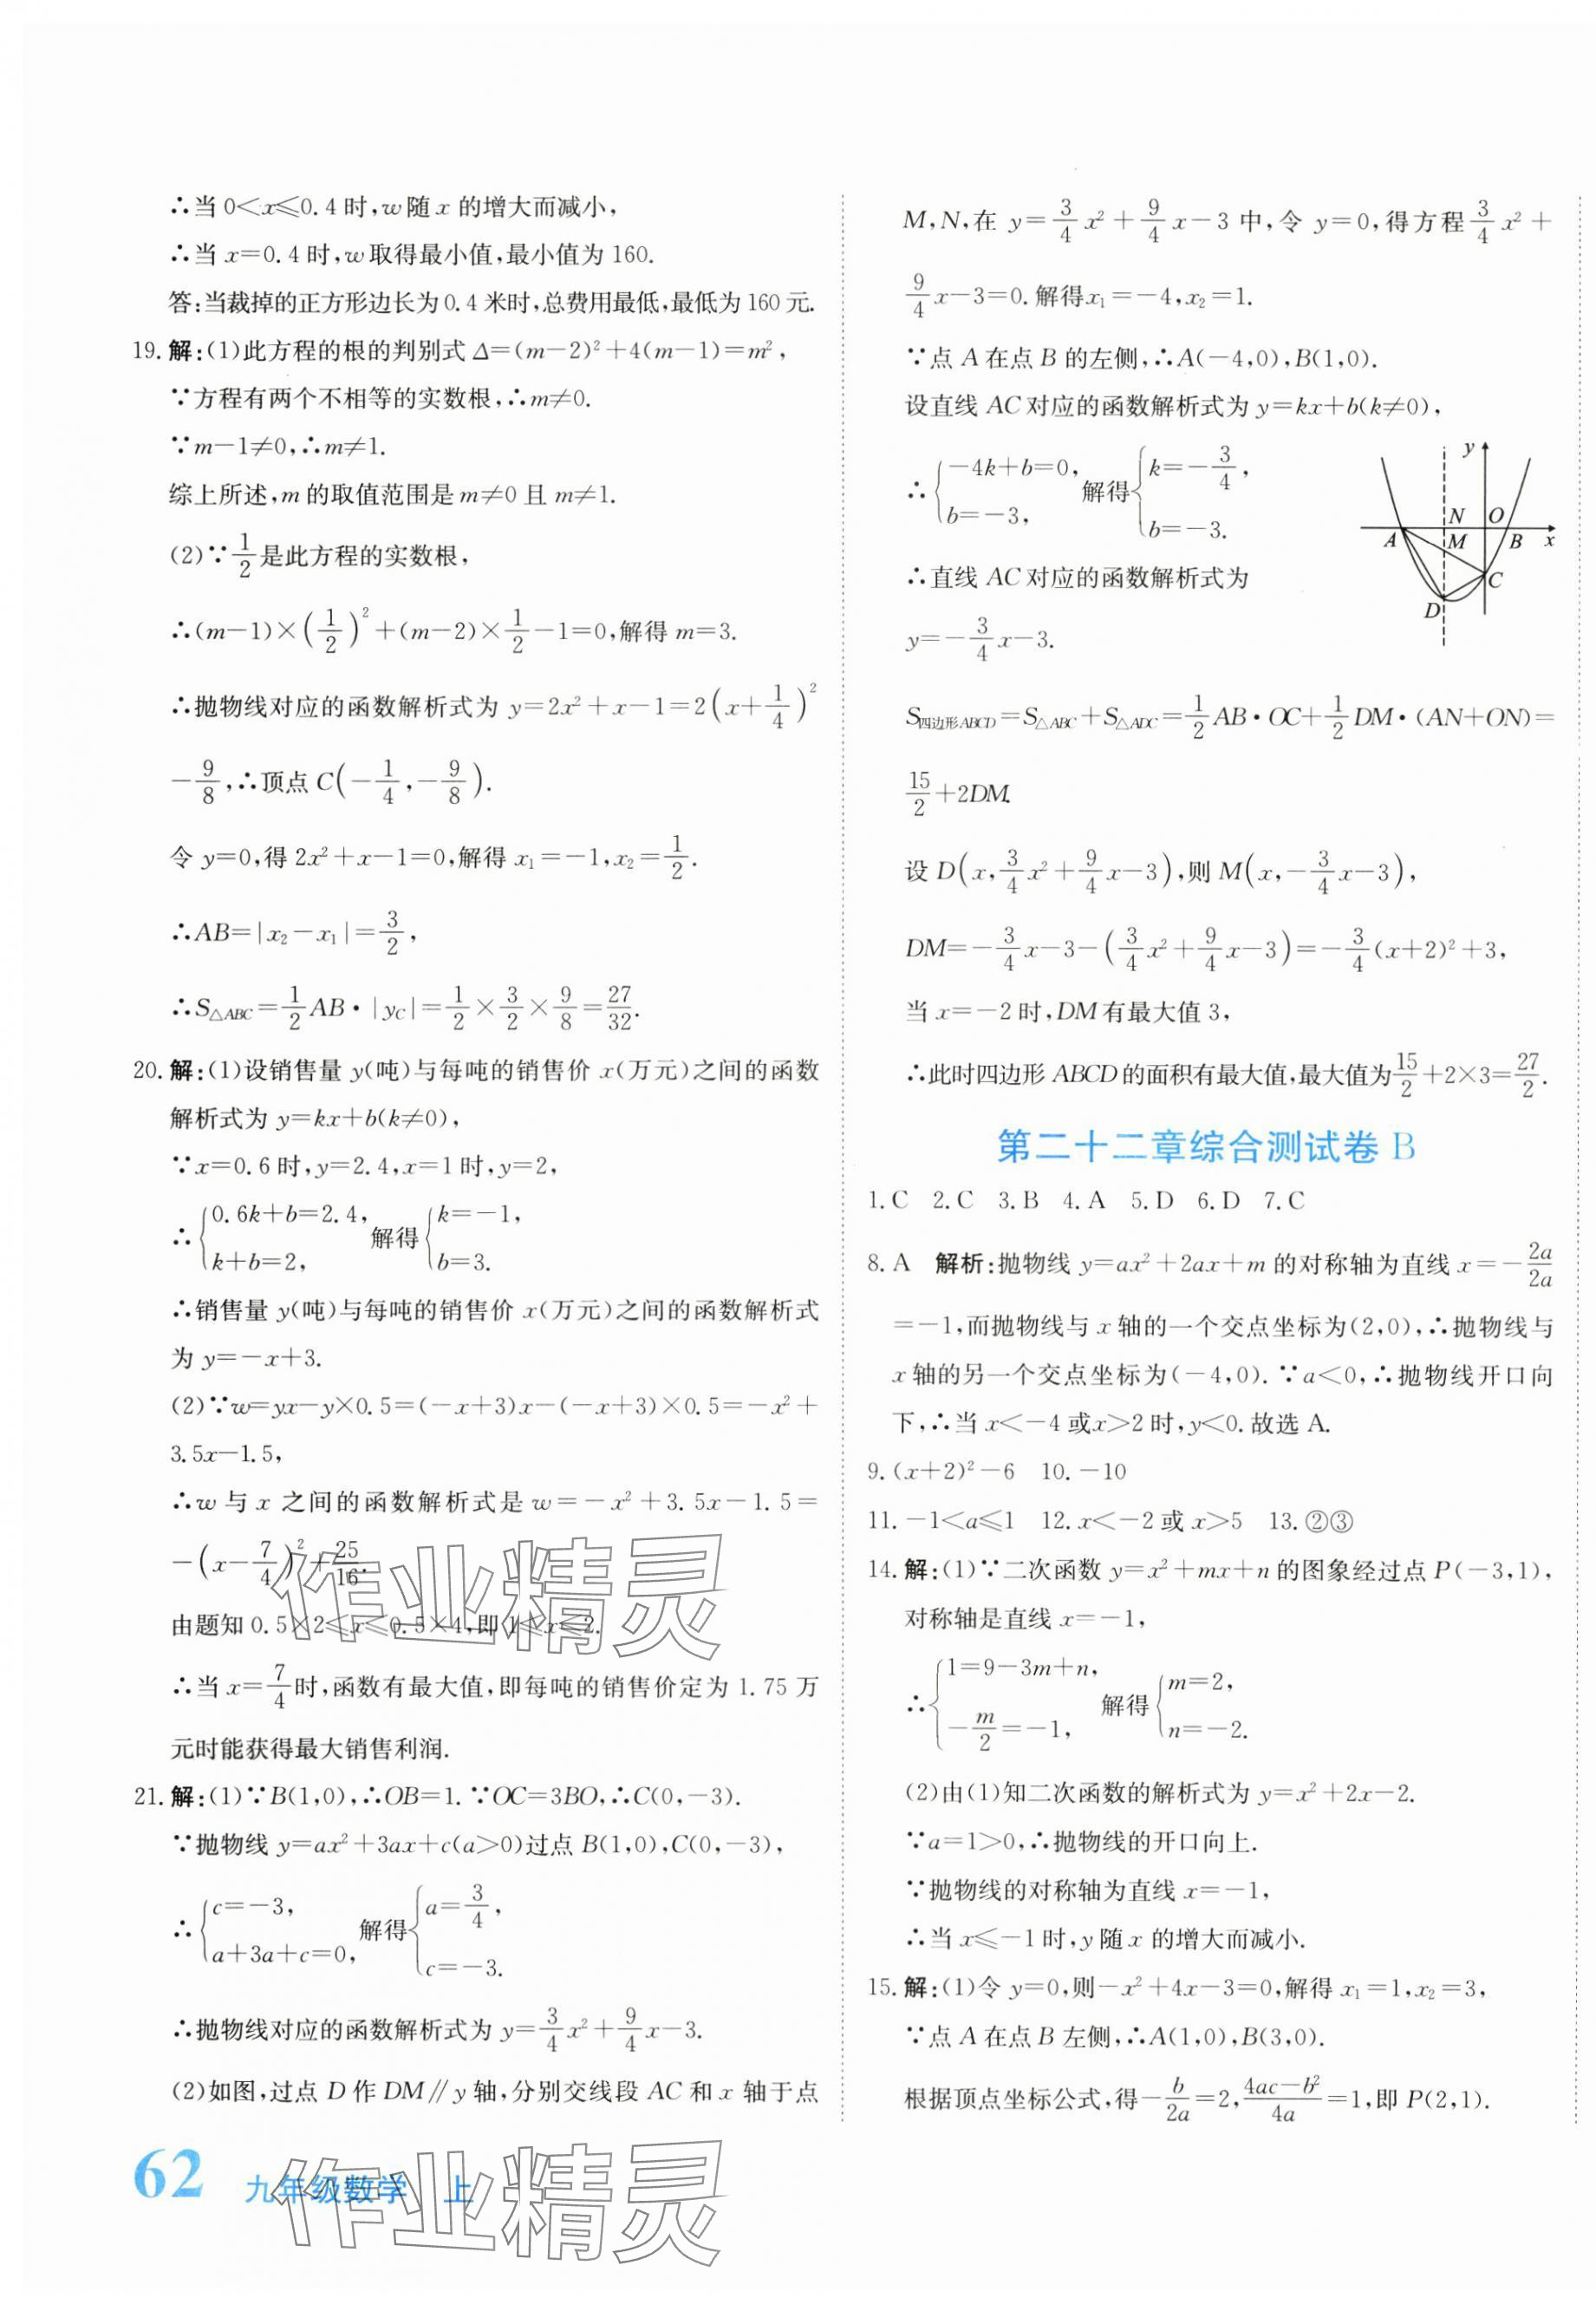 ∴当 0<x≤0.4 时,w 随 x 的增大而减小,
∴当 x=0.4 时,w 取得最小值,最小值为 160.
答:当裁掉的正方形边长为 0.4 米时,总费用最低,最低为 160 元.
19. 解:(1)此方程的根的判别式 Δ=(m-2)²+4(m-1)=m²,
∵方程有两个不相等的实数根,∴m≠0.
∵m-1≠0,∴m≠1.
综上所述,m 的取值范围是 m≠0 且 m≠1.
(2)∵1/2是此方程的实数根,
∴(m-1)×(1/2)²+(m-2)×1/2-1=0,解得 m=3.
∴抛物线对应的函数解析式为 y=2x²+x-1=2(x+1/4)²
-9/8,∴顶点 C(-1/4,-9/8).
令 y=0,得 2x²+x-1=0,解得 x₁=-1,x₂=1/2.
∴AB=|x₂-x₁|=3/2,
∴S△ABC=1/2AB·|yC|=1/2×3/2×9/8=27/32.
20. 解:(1)设销售量 y(吨)与每吨的销售价 x(万元)之间的函数
解析式为 y=kx+b(k≠0),
∵x=0.6 时,y=2.4,x=1 时,y=2,
∴{0.6k+b=2.4, k+b=2, 解得{k=-1, b=3.
∴销售量 y(吨)与每吨的销售价 x(万元)之间的函数解析式
为 y=-x+3.
(2)∵w=yx-y×0.5=(-x+3)x-(-x+3)×0.5=-x²+
3.5x-1.5,
∴w 与 x 之间的函数解析式是 w=-x²+3.5x-1.5=
-(x-7/4)²+25/16.
由题知 0.5×2≤x≤0.5×4,即 1≤x≤2.
∴当 x=7/4时,函数有最大值,即每吨的销售价定为 1.75 万
元时能获得最大销售利润.
21. 解:(1)∵B(1,0),∴OB=1.∵OC=3BO,∴C(0,-3).
∵抛物线 y=ax²+3ax+c(a>0)过点 B(1,0),C(0,-3),
∴{c=-3, a+3a+c=0, 解得{a=3/4, c=-3.
∴抛物线对应的函数解析式为 y=3/4x²+9/4x-3.
(2)如图,过点 D 作 DM∥y 轴,分别交线段 AC 和 x 轴于点
62 九年级数学 上
M,N,在 y=3/4x²+9/4x-3 中,令 y=0,得方程3/4x²+
9/4x-3=0.解得x₁=-4,x₂=1.
∵点 A 在点 B 的左侧,∴A(-4,0),B(1,0).
设直线 AC 对应的函数解析式为 y=kx+b(k≠0),
∴{-4k+b=0, b=-3, 解得{k=-3/4, b=-3.
y
N O
A M B x
C
D
∴直线 AC 对应的函数解析式为
y=-3/4x-3.
S四边形ABCD=S△ABC+S△ADC=1/2AB·OC+1/2DM·(AN+ON)=
15/2+2DM.
设 D(x,3/4x²+9/4x-3),则 M(x,-3/4x-3),
DM=-3/4x-3-(3/4x²+9/4x-3)=-3/4(x+2)²+3,
当 x=-2 时,DM 有最大值 3,
∴此时四边形 ABCD 的面积有最大值,最大值为15/2+2×3=27/2.
第二十二章综合测试卷 B
1.C 2.C 3.B 4.A 5.D 6.D 7.C
8.A 解析:抛物线 y=ax²+2ax+m 的对称轴为直线 x=-2a/2a
=-1,而抛物线与 x 轴的一个交点坐标为(2,0),∴抛物线与
x 轴的另一个交点坐标为(-4,0).∵a<0,∴抛物线开口向
下,∴当 x<-4 或x>2 时,y<0.故选 A.
9.(x+2)²-6 10.-10
11.-1<a≤1 12.x<-2 或 x>5 13.②③
14. 解:(1)∵二次函数 y=x²+mx+n 的图象经过点 P(-3,1),
对称轴是直线 x=-1,
∴{1=9-3m+n, -m/2=-1, 解得{m=2, n=-2.
(2)由(1)知二次函数的解析式为 y=x²+2x-2.
∵a=1>0,∴抛物线的开口向上.
∵抛物线的对称轴为直线 x=-1,
∴当 x≤-1 时,y 随 x 的增大而减小.
15. 解:(1)令 y=0,则-x²+4x-3=0,解得 x₁=1,x₂=3,
∵点 A 在点 B 左侧,∴A(1,0),B(3,0).
根据顶点坐标公式,得-b/2a=2,4ac-b²/4a=1,即 P(2,1).
作业精灵
作业精灵